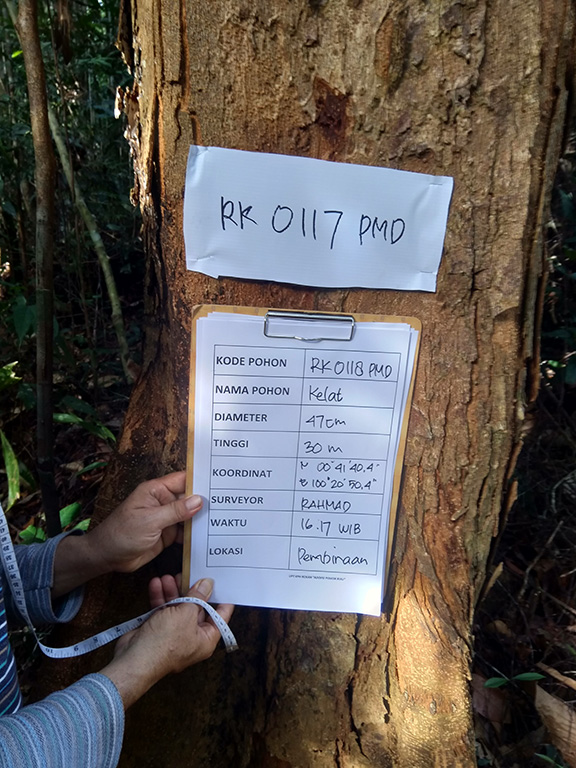 RK 0117 PMD
KODE POHON RK 0118 PMD
NAMA POHON Kelat
DIAMETER 47cm
TINGGI 30 m
KOORDINAT N 00°41'40.4"
E 100°20'50.4"
SURVEYOR RAHMAD
WAKTU 16.17 WIB
LOKASI Pembinaan